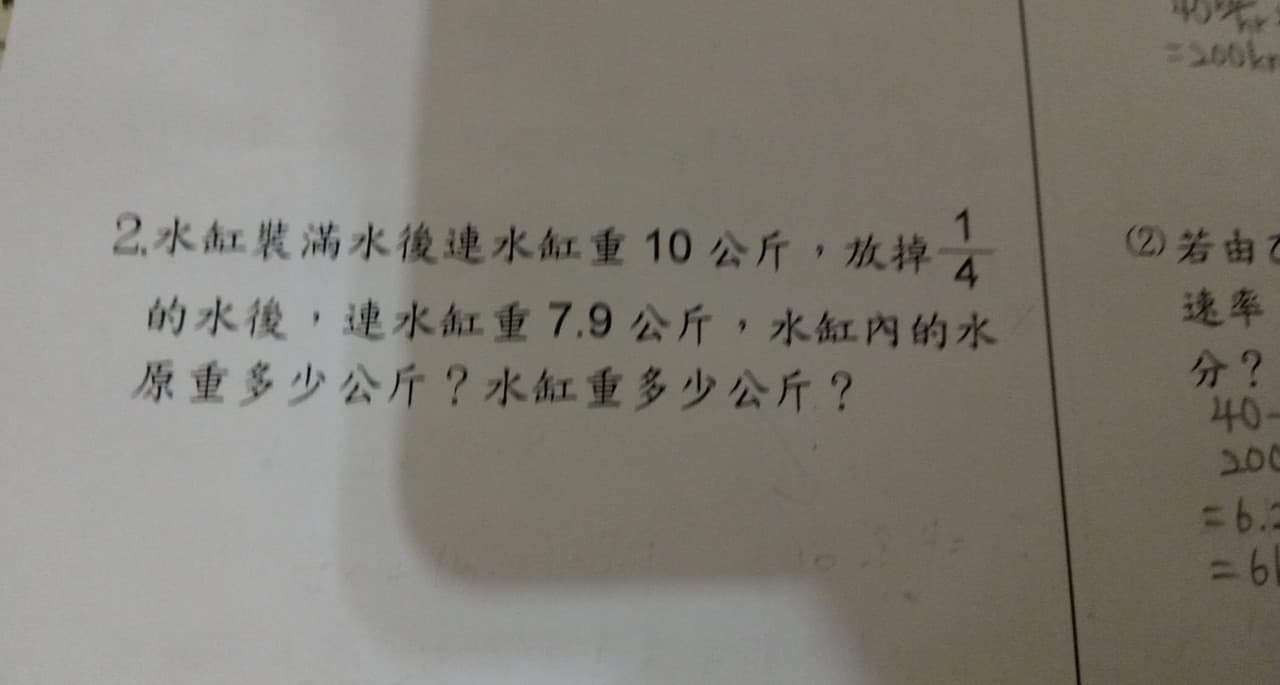 2.水缸裝滿水後連水缸重 10 公斤，放掉1/4
的水後，連水缸重 7.9 公斤，水缸內的水
原重多少公斤？水缸重多少公斤？
=200k
(2)若由
速率
分？
40-
200
=6.
=6